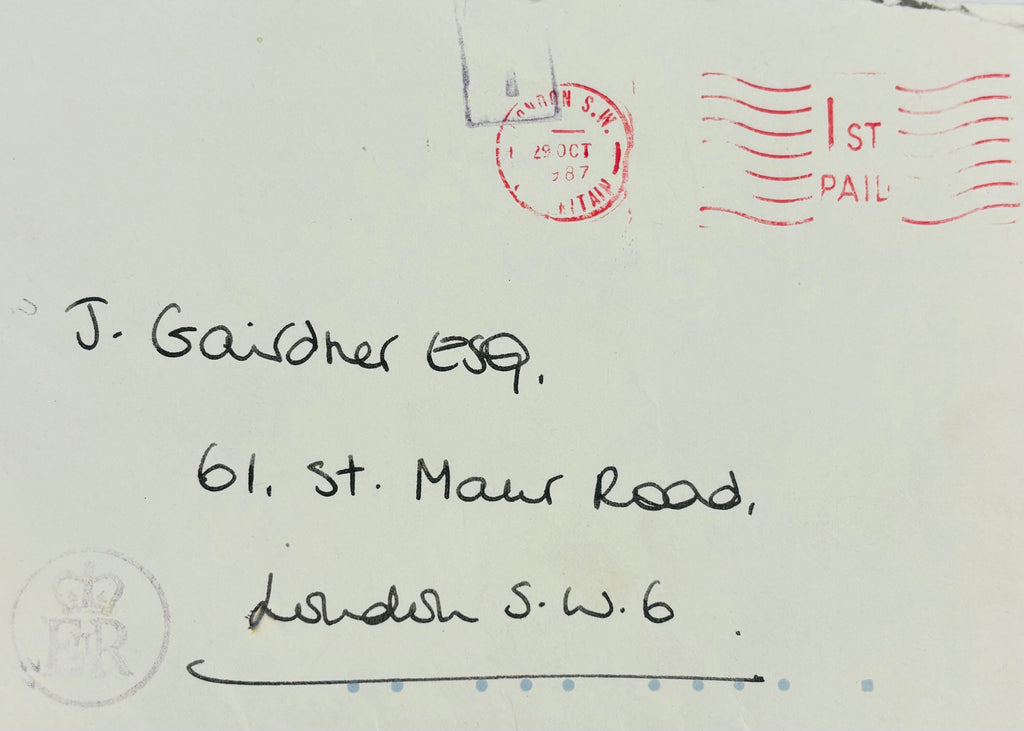 LONDON S.W.
29 OCT
987
ITAIN
1ST
PAID
J. Gairdner ESQ.
61. St. Maur Road.
London S.W.6.
EIIR